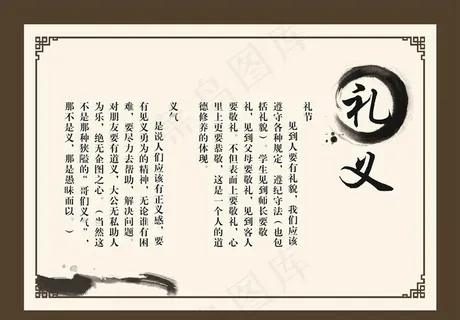 礼义
礼节
见到人要有礼貌，我们应该
遵守各种规定，遵纪守法（也包
括礼貌）。学生见到师长要敬
礼，见到父母要敬礼，见到客人
要敬礼。不但表面上要敬礼，心
里上更要恭敬，这是一个人的道
德修养的体现。
义气
是说人们应该有正义感，要
有见义勇为的精神，无论谁有困
难，要尽力去帮助，解决问题。
对朋友要有道义，大公无私助人
为乐，绝无企图之心。（当然这
不是那种狭隘的“哥们义气”，
那不是义，那是愚昧而以。）